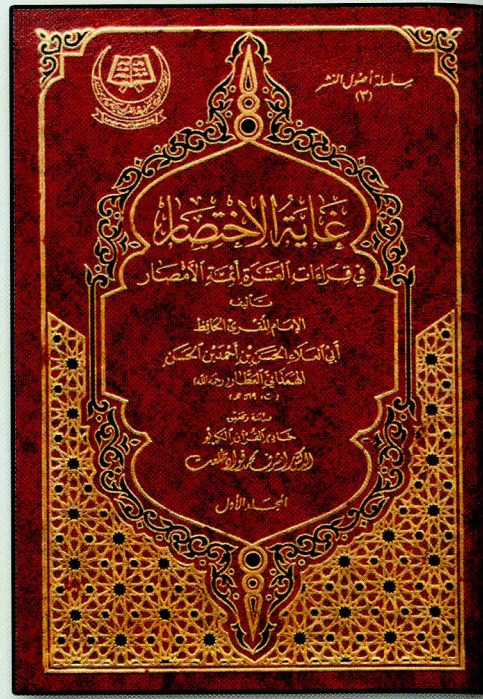 سلسلة أصول النشر
(٣)
غاية الاختصار
في قراءات العشرة أئمة الأمصار
تأليف
الإمام المقرئ الحافظ
أبي العلاء الحسن بن أحمد بن الحسن
الهمذاني العطار (رحمه الله)
(ت ٥٦٩ هـ)
دراسة وتحقيق
خادم القرآن الكريم
الدكتور أشرف محمد فؤاد طلعت
المجلد الأول